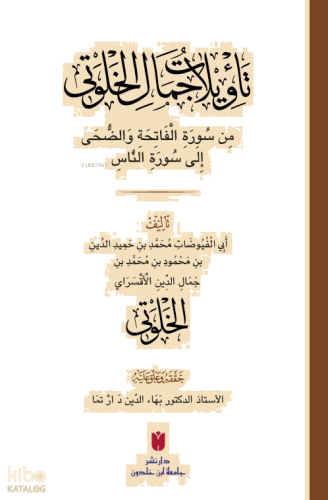 تَأْوِيلَات جُمَال الخَلْوَتِى
مِن سُورَةِ الْفَاتِحَة وَالضُّحَى
إِلَى سُورَةِ النَّاسِ
تَأْلِيفْ
أَبِي الْفُيُوضَاتِ مُحَمَّدِ بنِ حَمِيدِ الدِّينِ
بنِ مَحْمُودِ بنِ مُحَمَّدِ بنِ
جَمَالِ الدِّينِ الْأَقْسَرَاي
الخَلْوَتِى
حَقَّقَهُ وَعَلَّقَ عَلَيْهِ
الأستاذ الدكتور بَهَاء الدّين دَارْتمَا
دار نشر
جامعة ابن خلدون
kibo
KATALOG